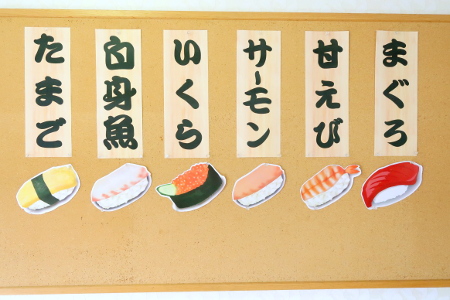 まぐろ
甘えび
サーモン
いくら
白身魚
たまご